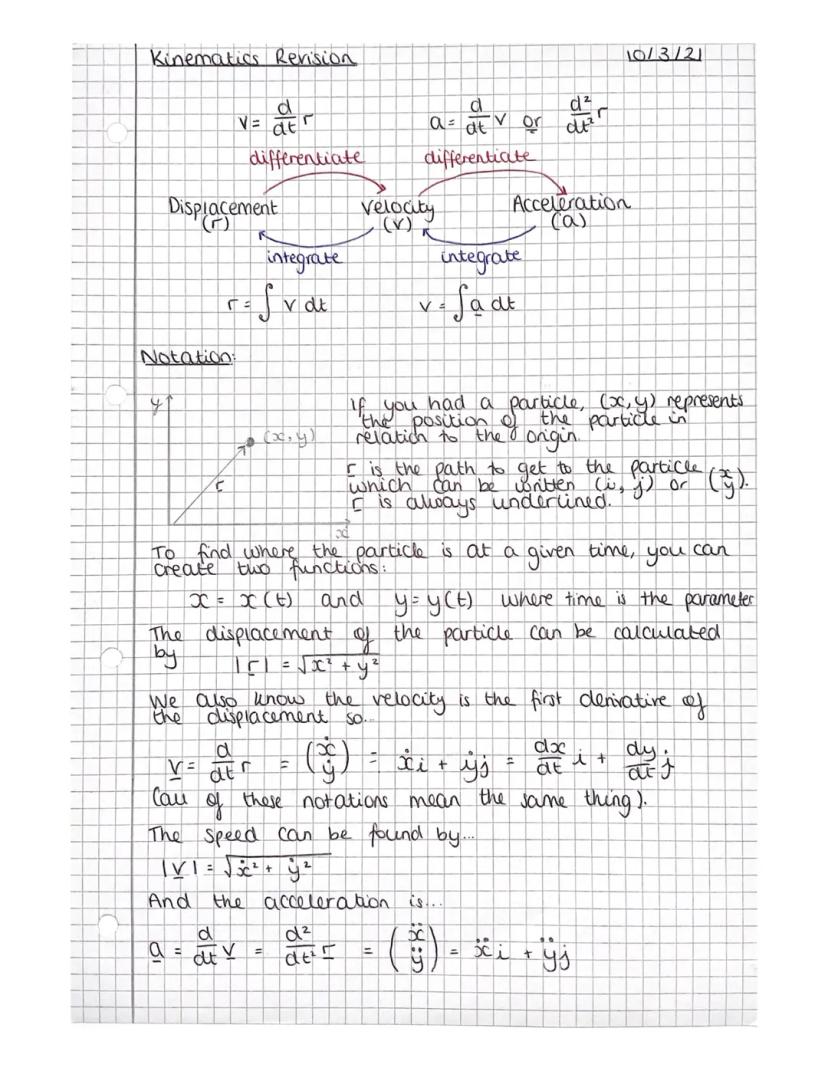 Kinematics Revision 10/3/21
v = d/dt r a = d/dt v or d²/dt² r
differentiate differentiate
Displacement (r) Velocity (v) Acceleration (a)
integrate integrate
r = ∫ v dt v = ∫ a dt
Notation:
y
(x,y)
r
x
If you had a particle, (x,y) represents
the position of the particle in
relation to the origin.
r is the path to get to the particle
which can be written (i, j) or (x y).
r is always underlined.
To find where the particle is at a given time, you can
create two functions:
x = x(t) and y = y(t) where time is the parameter
The displacement of the particle can be calculated
by |r| = √x² + y²
We also know the velocity is the first derivative of
the displacement so...
v = d/dt r = (ẋ ẏ) = ẋi + ẏj = dx/dt i + dy/dt j
(all of these notations mean the same thing).
The speed can be found by...
|v| = √ẋ² + ẏ²
And the acceleration is...
a = d/dt v = d²/dt² r = (ẍ ÿ) = ẍi + ÿj